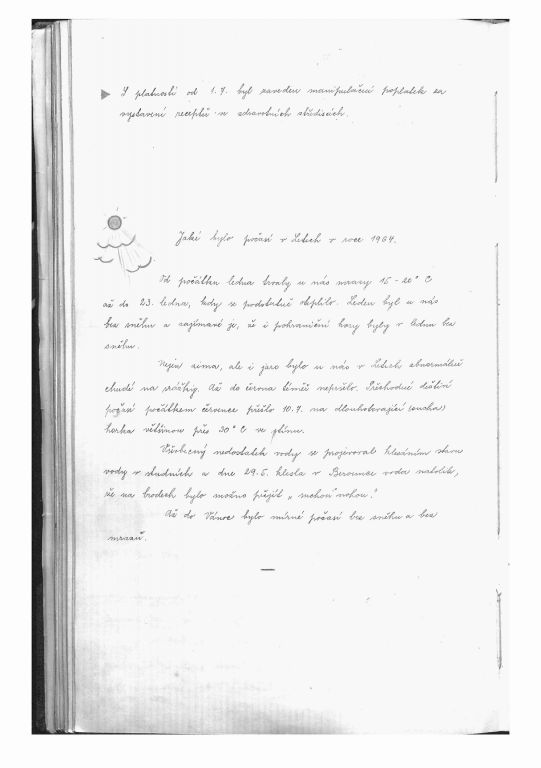 S platností od 1.7. byl zaveden manipulační poplatek za
vystavení receptů v zdravotních střediscích.
Jaké bylo počasí v Letech v roce 1964.
Od počátku ledna trvaly u nás mrazy 15 - 20° C
až do 23. ledna, kdy se podstatně oteplilo. Leden byl u nás
bez sněhu a zajímavé je, že i pohraniční hory byly v lednu bez
sněhu.
Nejen zima, ale i jaro bylo u nás v Letech abnormálně
chudé na srážky. Až do června téměř nepršelo. Přechodné deštivé
počasí počátkem července přešlo 10.7. na dlouhotrvající (sucha)
horka většinou přes 30° C ve stínu.
Všeobecný nedostatek vody se projevoval klesáním stavu
vody v studních a dne 29.6. klesla v Berounce voda natolik,
že na brodech bylo možno přejít „suchou nohou."
Až do Vánoc bylo mírné počasí bez sněhu a bez
mrazů.